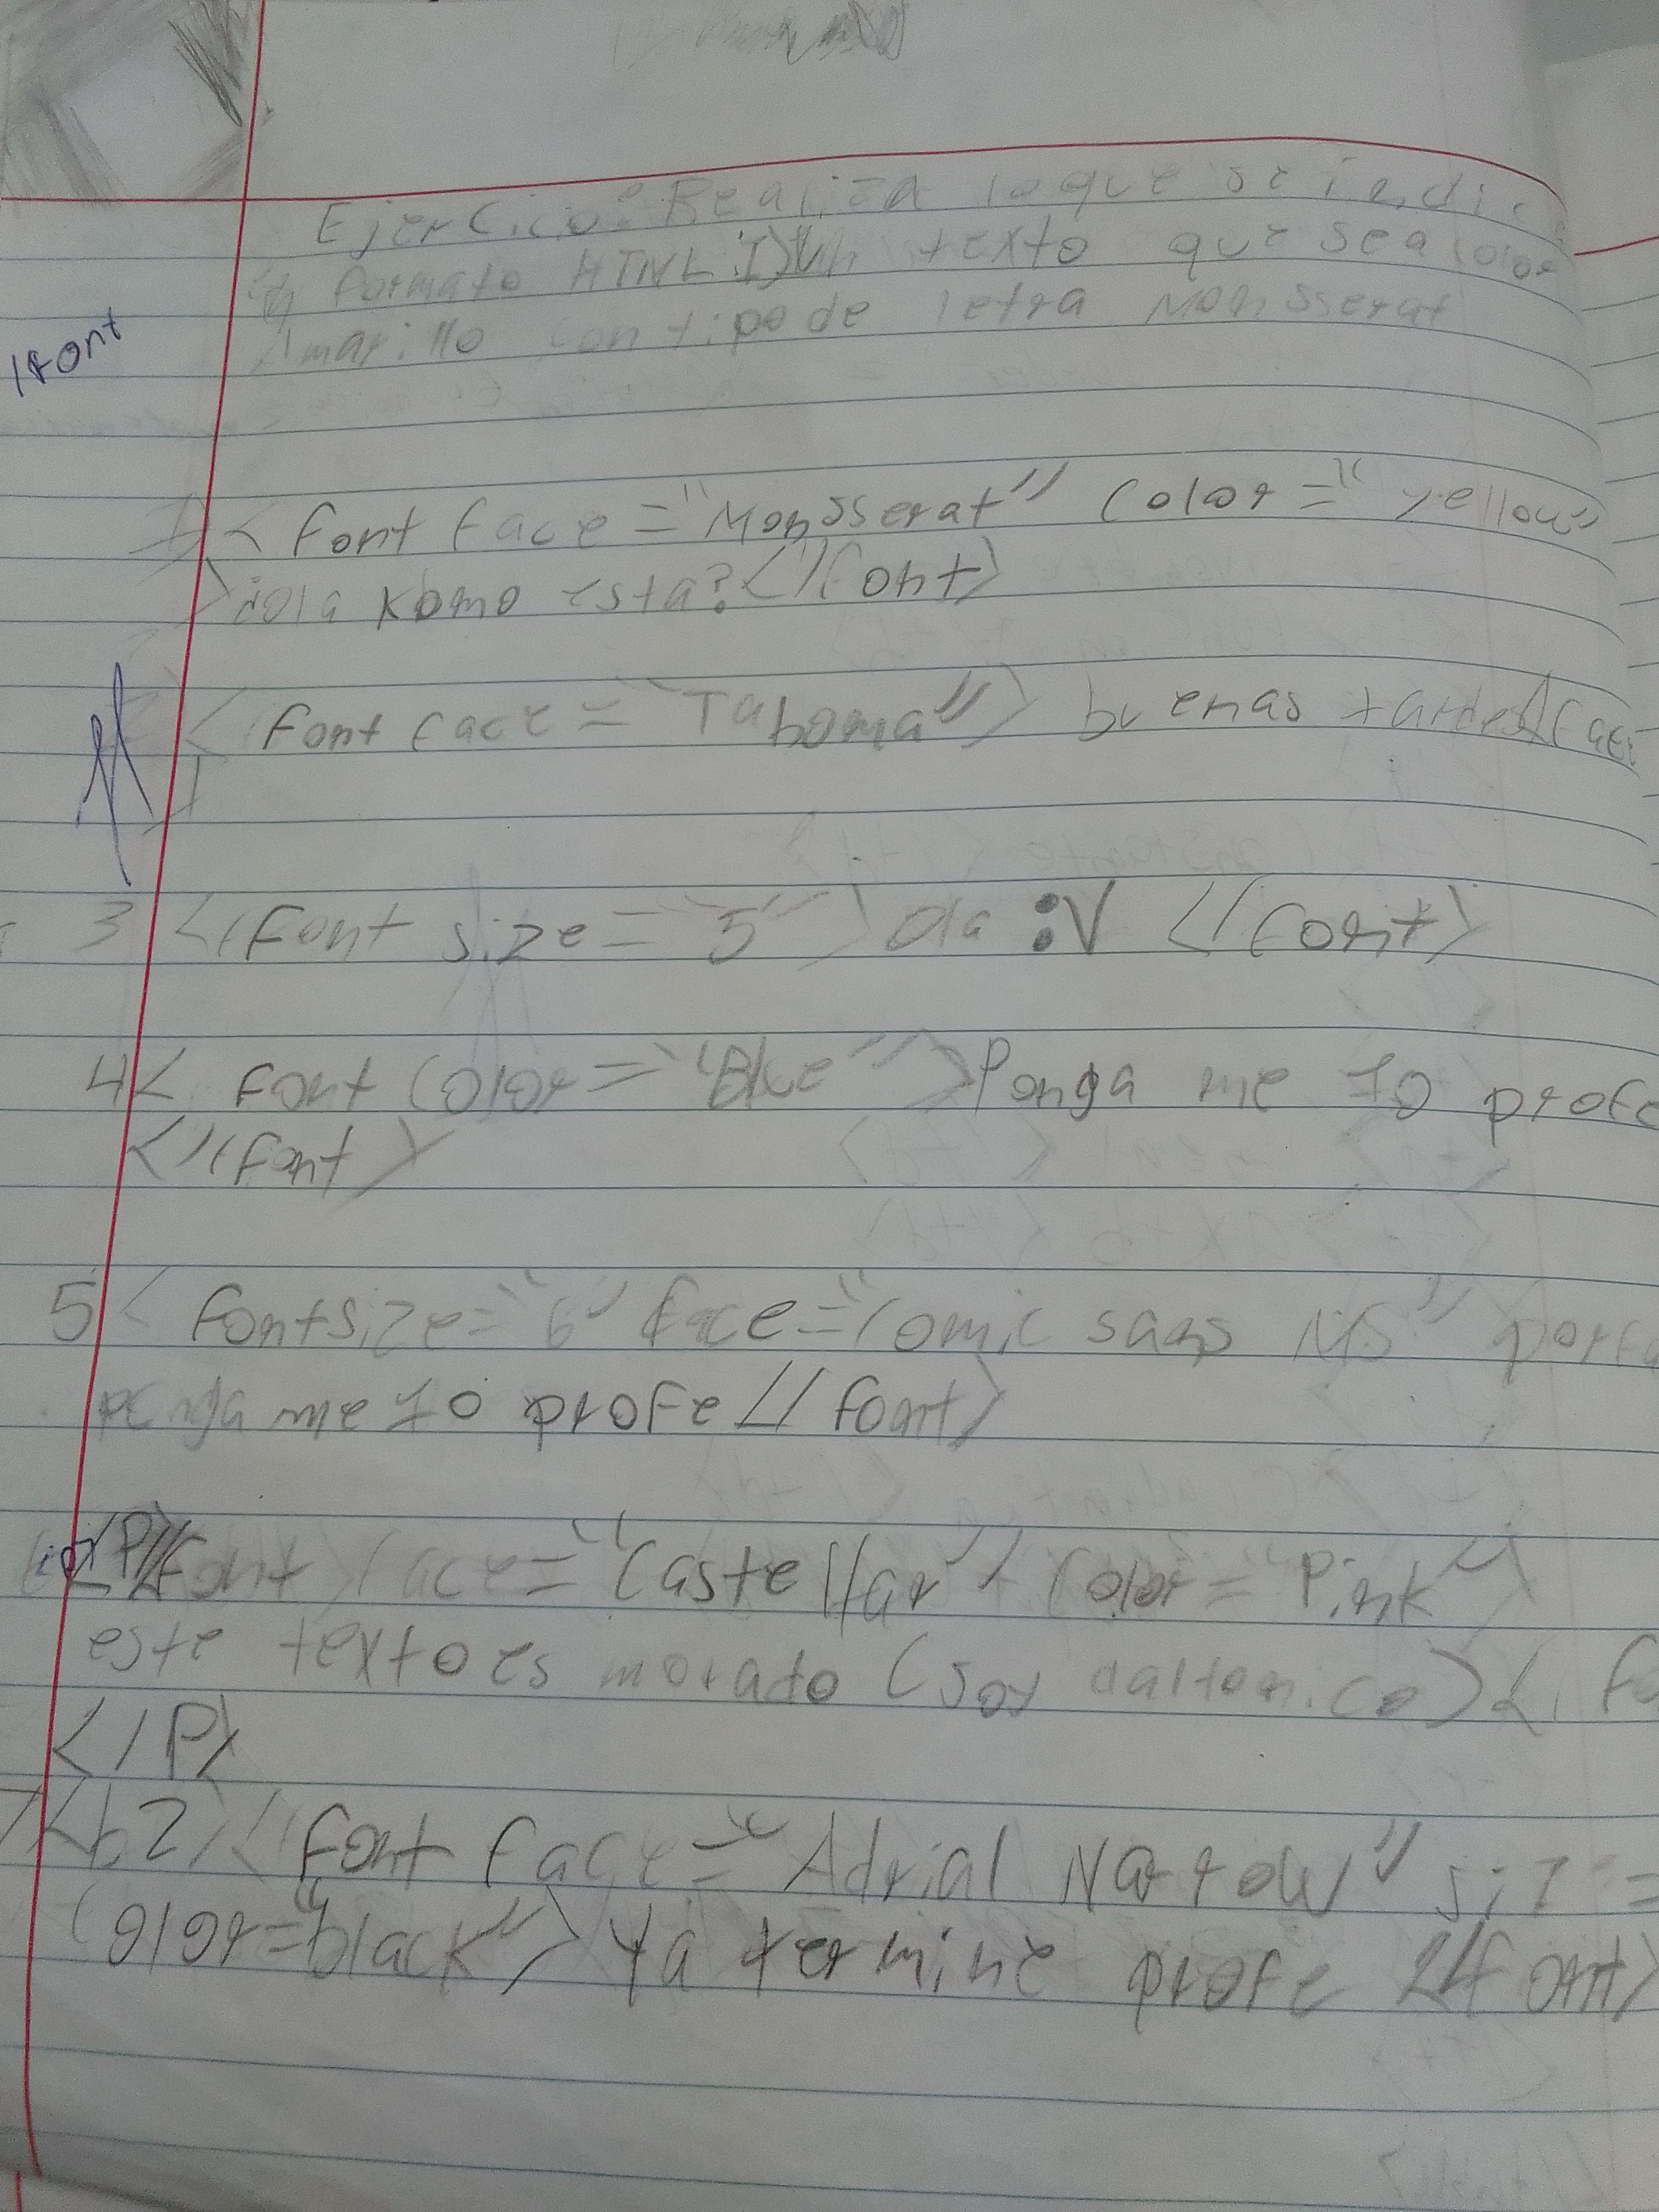 Ejercicio: Realiza lo que se indi
en formato HTML 1) Un texto que sea color
Amarillo con tipo de letra Monsserat
/font
1) < font face = "Monsserat" color = "yellow"
> ola komo esta? </font>
< font face = "Tahoma"> buenas tardes </face
3 <font size = "5"> ola :V </font>
4 < font color = "Blue"> Ponga me 10 profe
</font>
5 < font size = "6" face = "comic sans MS"
ponga me 10 profe </font>
<P> <font face = "Castellar" color = "Pink">
este texto es morado (soy daltonico) </fo
</P>
7 <h2> <font face = "Adrial Narrow" siz =
color = "black"> Ya termine profe </font>